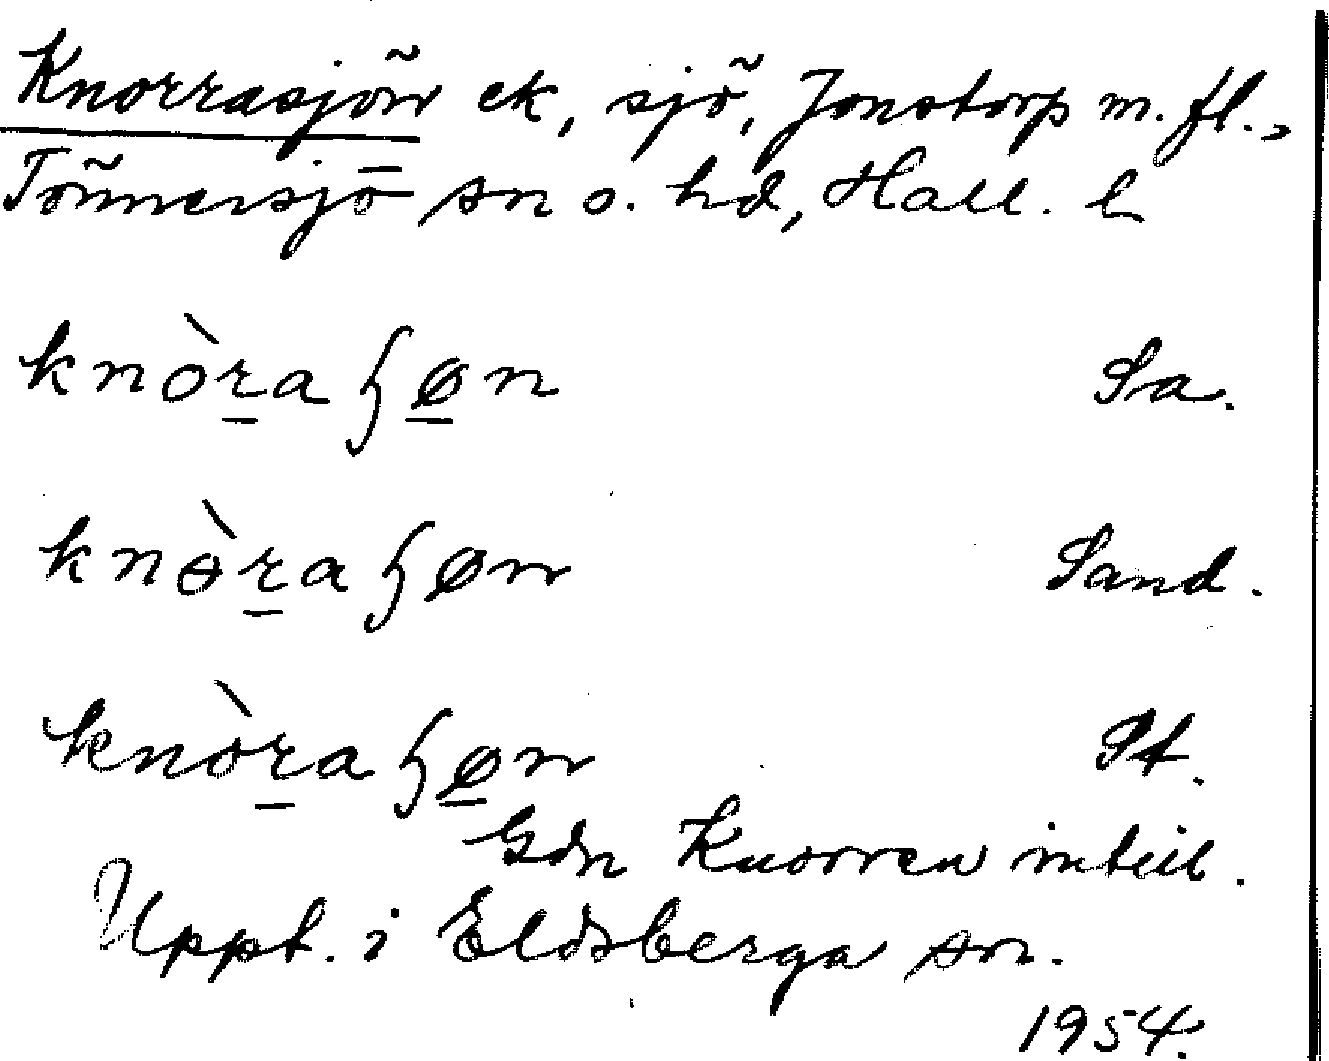 Knorrasjön ek, sjö, Jonstorp m. fl.,
Tönnersjö sn o. hd, Hall. l
knòra ɧøn Sa.
knɵ̀ra ɧøn Sand.
knòra ɧøn St.
Gdn Knorren intill.
Uppt. i Eldsberga sn.
1954.